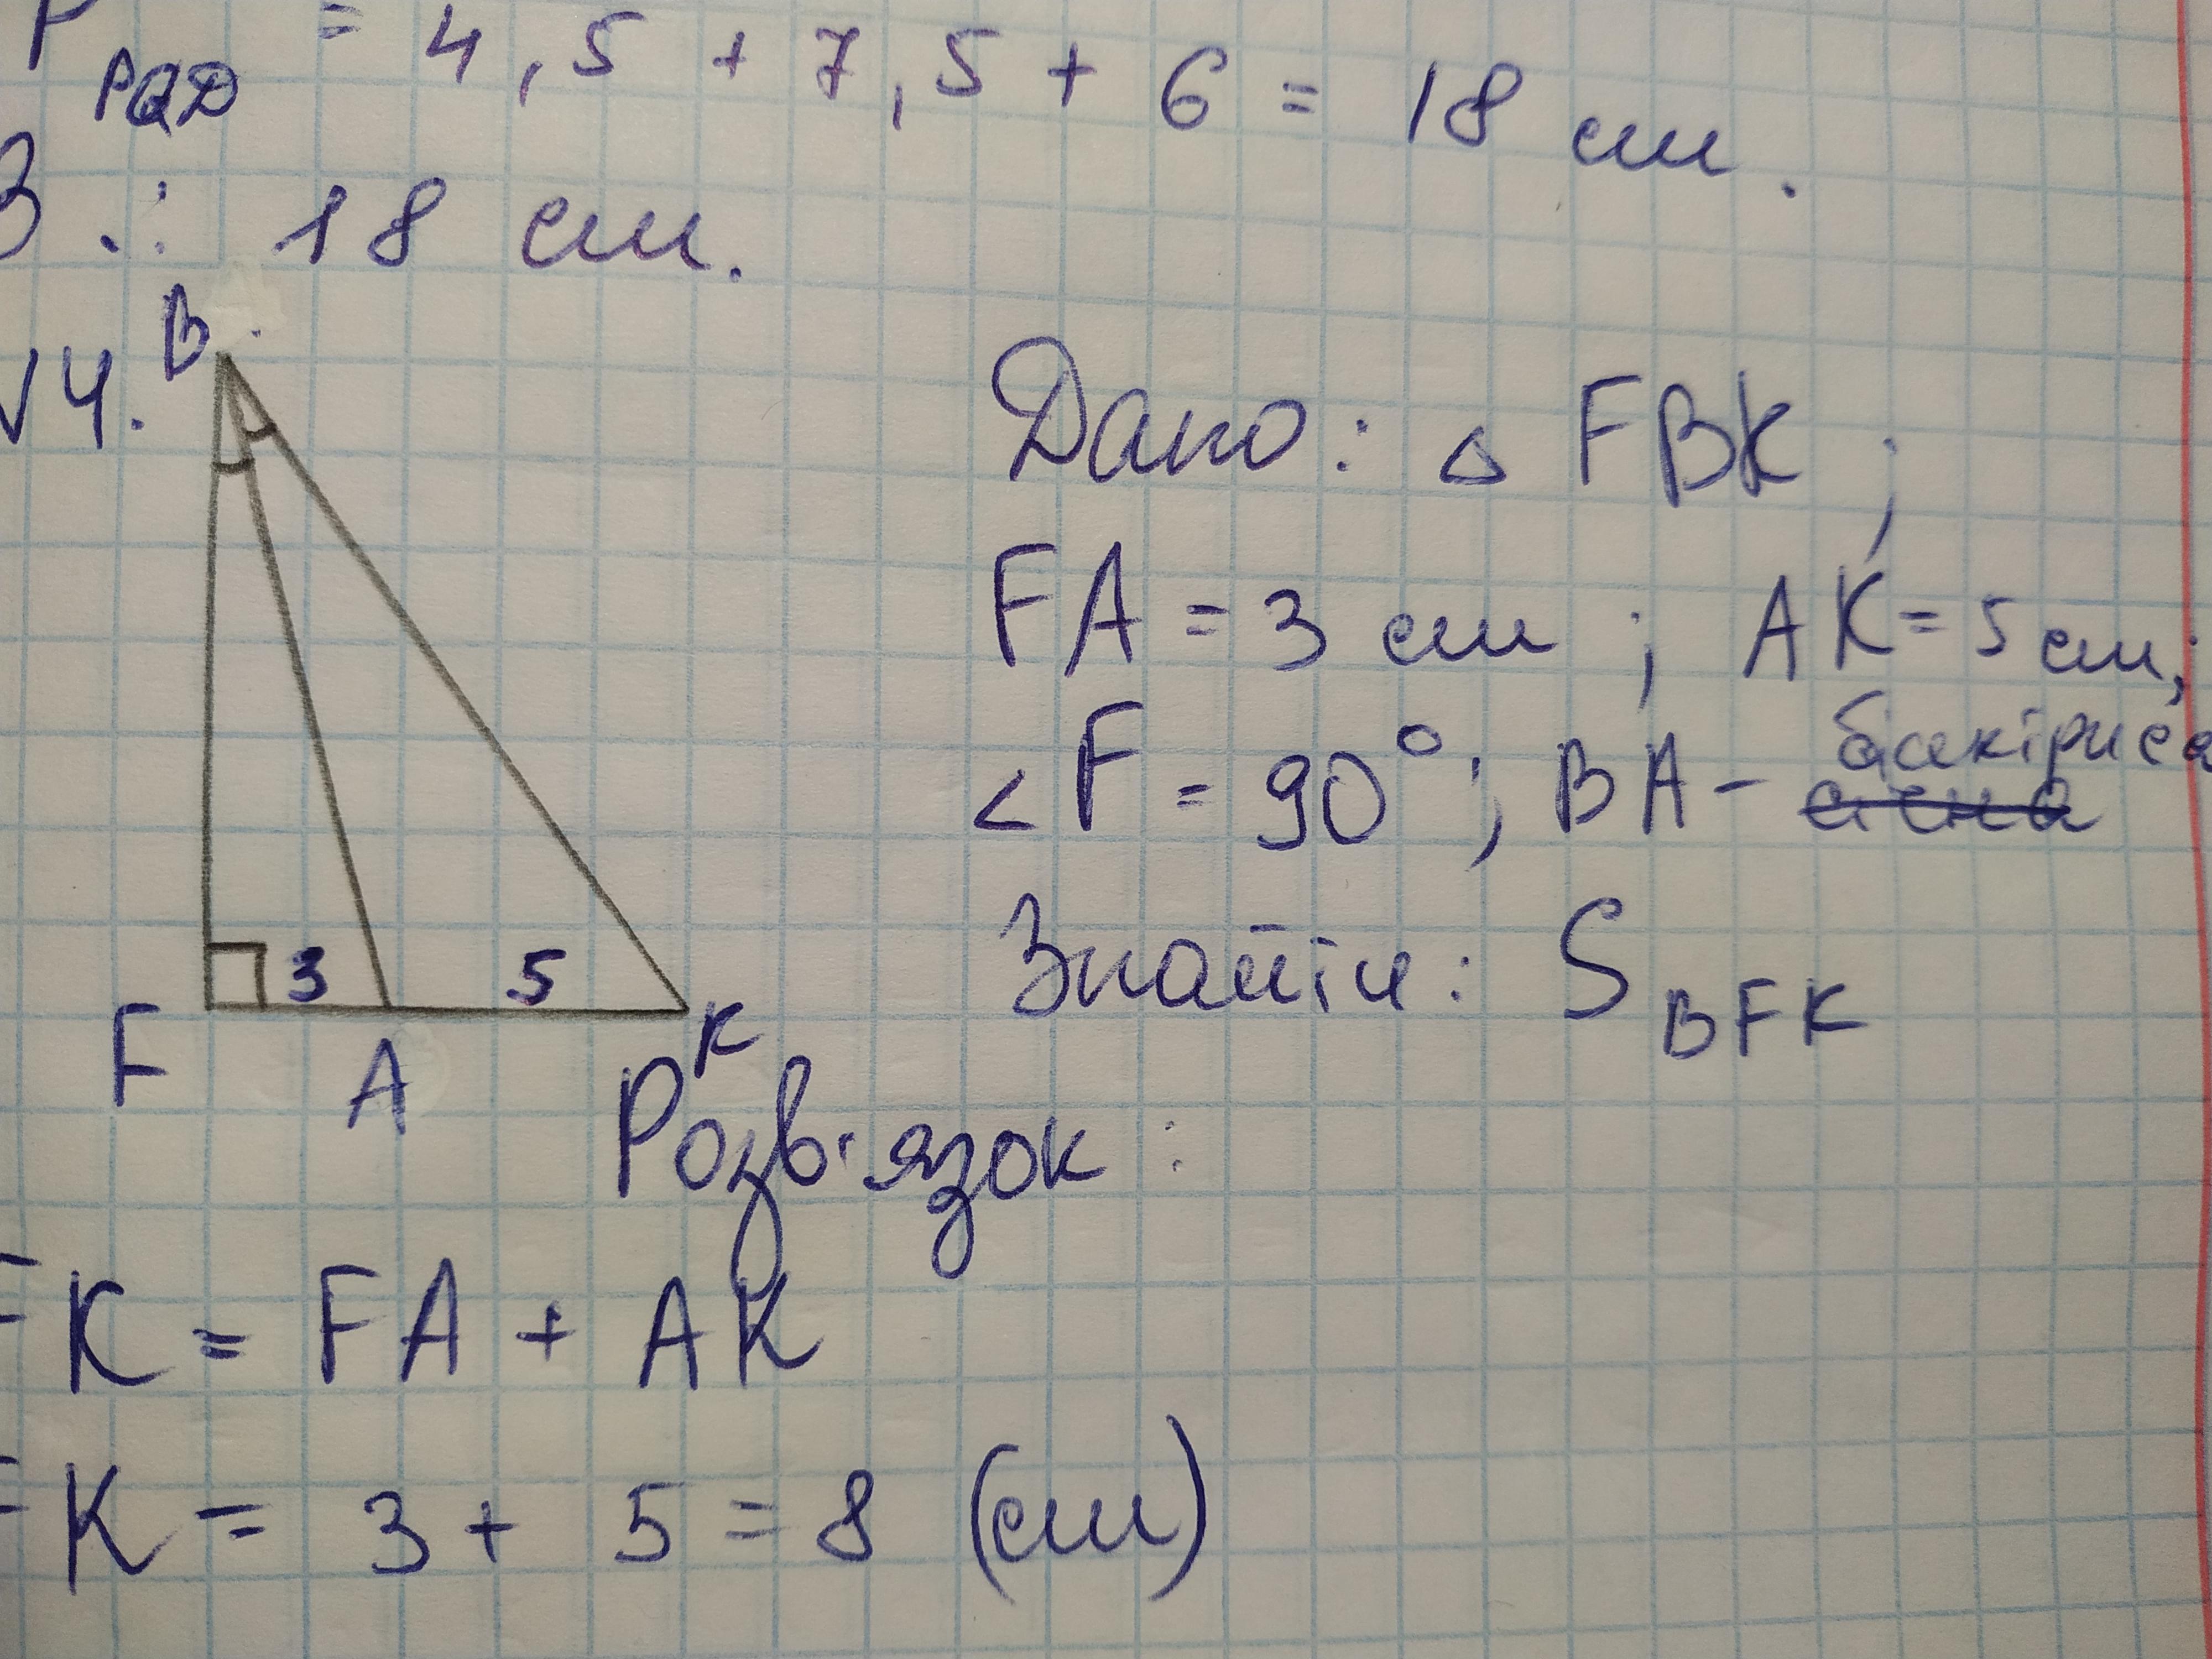 P PQD = 4,5 + 7,5 + 6 = 18 см.
В.: 18 см.
√4.
B
Дано: △ FBK;
FA = 3 см; AK = 5 см;
бісектриса
<F = 90°; BA – січна
3 5
F A K
Знайти: S BFK
Розв'язок:
FK = FA + AK
FK = 3 + 5 = 8 (см)